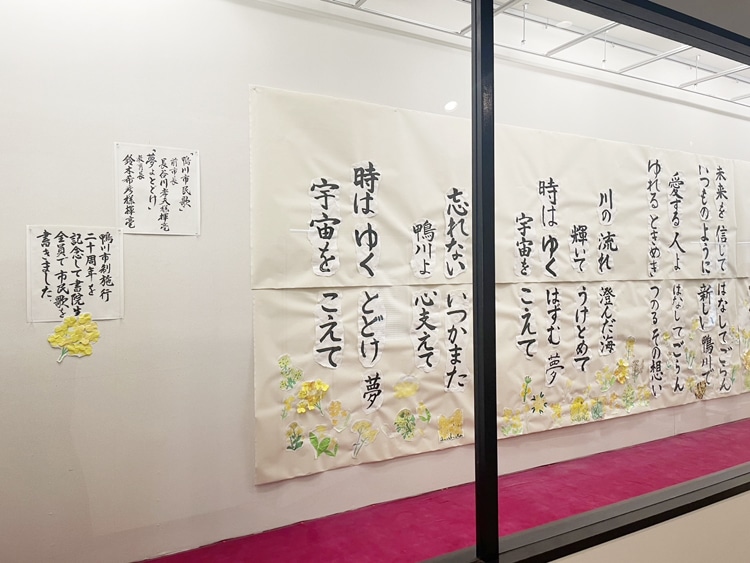 未来を 信じて はなしてごらん
いつものように 新しい 鴨川で
愛する 人よ はなしてごらん
ゆれる ときめき つのる その想い
川の 流れ 澄んだ 海
輝いて うけとめて
時は ゆく はずむ 夢
宇宙を こえて
忘れない いつかまた
鴨川よ 心支えて
時は ゆく とどけ 夢
宇宙を こえて
「鴨川市民歌」
前市長
長谷川孝夫様揮毫
「夢よとどけ」
教育長
鈴木希彦様揮毫
鴨川市制施行
二十周年を
記念して書院生
全員で市民歌を
書きました。